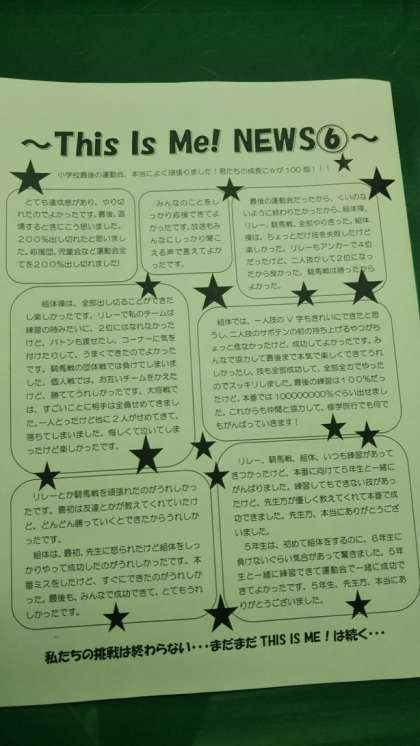 ～This Is Me! NEWS⑥～
小学校最後の運動会、本当によく頑張りました！君たちの成長に☆が100個！！！
とても達成感があり、やり切
れたのでよかったです。最後、退
場するときにこう思いました。
200％出し切れたと思いまし
た。応援団、児童会など運動会全
てを200％出し切れました！
みんなのことをし
っかり応援できてよ
かったです。放送もみ
んなにしっかり聞こ
える声で言えてよか
ったです。
最後の運動会だったから、くいのな
いように終わりたかったから、組体操、
リレー、騎馬戦、全部やりきった。組体
操は、ちょっとだけ技を失敗したけど
楽しかった。リレーもアンカーで4位
だったけど、二人抜かして2位になっ
たから良かった。騎馬戦は勝ったから
よかった。
組体操は、全部出し切ることができた
し楽しかったです。リレーで私のチームは
練習の時みたいに、2位にはなれなかった
けど、バトンも渡せたし、コーナーに気を
付けたりして、うまくできたのでよかった
です。騎馬戦の団体戦では負けてしまいま
した。個人戦では、お互いチームをかえた
けど、勝ててうれしかったです。大将戦で
は、すごいことに相手は全員せめてきまし
た。一人とったけど他に2人がせめてきて、
落ちてしまいました。悔しくて泣いてしま
ったけど楽しかったです。
組体では、一人技のV字もきれいにできたと思
うし、二人技のサボテンの初の持ち上げるやつがち
ょっと危なかったけど、成功してよかったです。み
んなで協力して最後まで本気で楽しくできてうれ
しかったし、技も全部成功して、全部全力でやった
のでスッキリしました。最後の練習は100％だっ
たけど、本番では100000000％ぐらい出せまし
た。これからも仲間と協力して、修学旅行でも何で
もがんばっていきます！
リレーとか騎馬戦を頑張れたのがうれしかっ
たです。最初は友達とかが教えてくれていたけ
ど、どんどん勝っていくとできたからうれしか
ったです。
組体は、最初、先生に怒られたけど組体をしっ
かりやって成功したのがうれしかったです。本
番ミスをしたけど、すぐにできたのがうれしかっ
た。最後も、みんなで成功できて、とてもうれ
しかったです。
リレー、騎馬戦、組体、いつも練習があって
きつかったけど、本番に向けて5年生と一緒に
がんばりました。練習してもできない技があっ
たけど、先生方が優しく教えてくれて本番で成
功できました。先生方、本当にありがとうござ
いました。
5年生は、初めて組体をするのに、6年生に
負けないぐらい気合があって驚きました。5年
生と一緒に練習できて運動会で一緒に成功で
きてよかったです。5年生、先生方、本当にあ
りがとうございました。
私たちの挑戦は終わらない・・・まだまだ THIS IS ME！は続く・・・